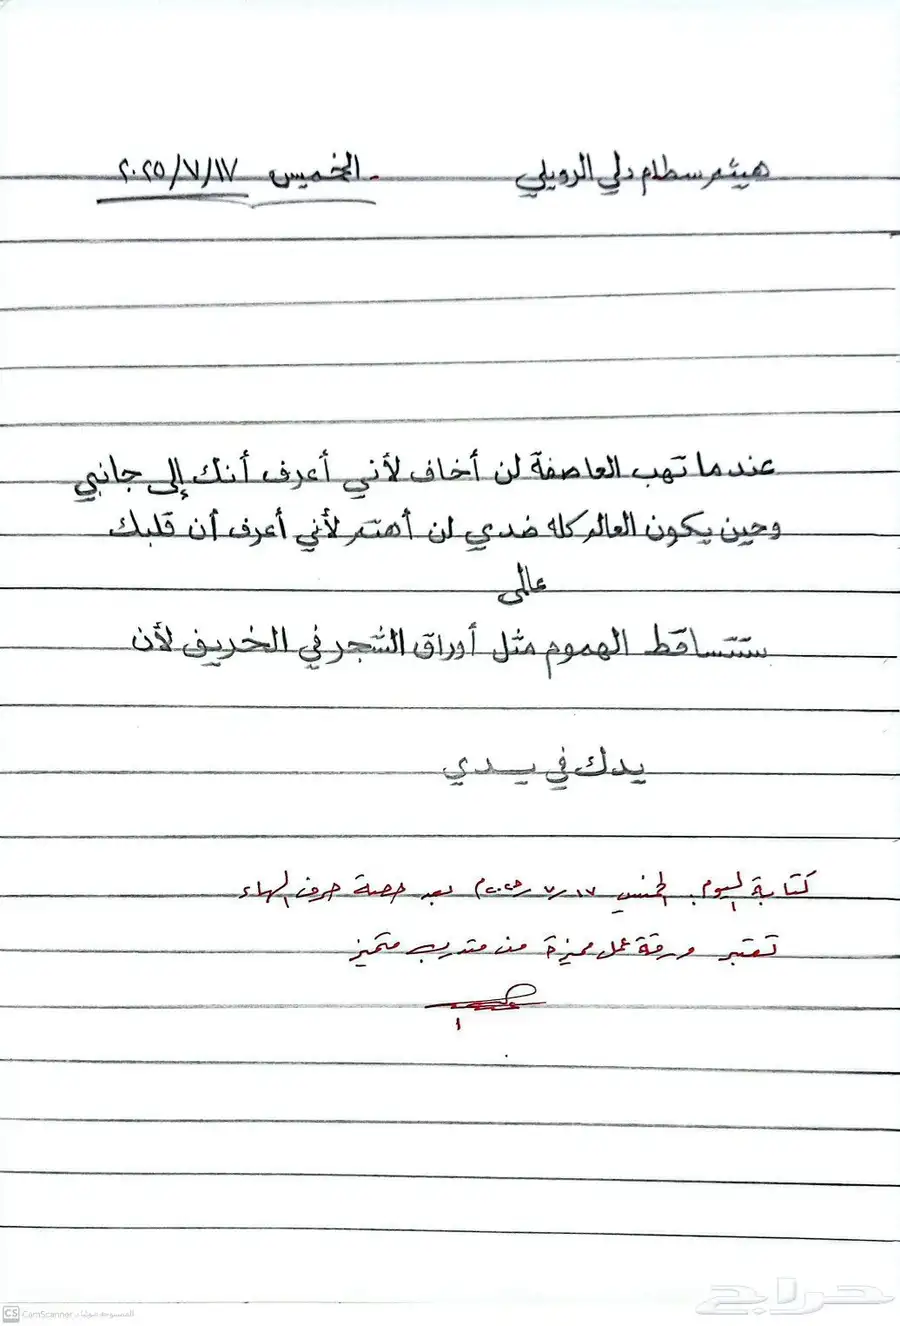 هيثم سطام دلي الرويلي الخميس ٢٠٢٥/٧/١٧
عندما تهب العاصفة لن أخاف لأني أعرف أنك إلى جانبي
وحين يكون العالم كله ضدي لن أهتم لأني أعرف أن قلبك
عالمي
ستتساقط الهموم مثل أوراق الشجر في الخريف لأن
يدك في يدي
كتابة اليوم الخميس ١٧/٧/٢٠٢٥م بعد حصة حرف الهاء
تعتبر ورقة عمل مميزة من متدرب متميز
CS CamScanner الممسوحة ضوئيا بـ
حراج